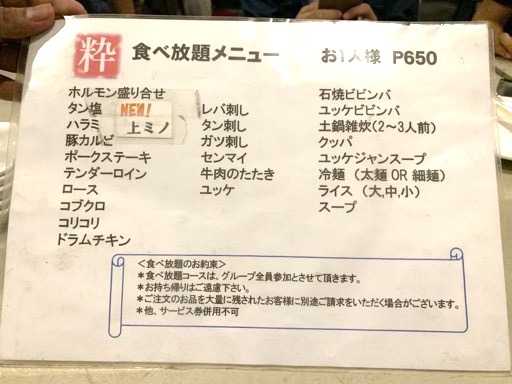 粋 食べ放題メニュー お1人様 P650
ホルモン盛り合せ
タン塩
NEW!
上ミノ
ハラミ
豚カルビ
ポークステーキ
テンダーロイン
ロース
コブクロ
コリコリ
ドラムチキン
レバ刺し
タン刺し
ガツ刺し
センマイ
牛肉のたたき
ユッケ
石焼ビビンバ
ユッケビビンバ
土鍋雑炊(2~3人前)
クッパ
ユッケジャンスープ
冷麺 (太麺 OR 細麺)
ライス (大,中,小)
スープ
<食べ放題のお約束>
*食べ放題コースは、グループ全員参加とさせて頂きます。
*お持ち帰りはご遠慮下さい。
*ご注文のお品を大量に残されたお客様に別途ご請求をいただく場合がございます。
*他、サービス券併用不可